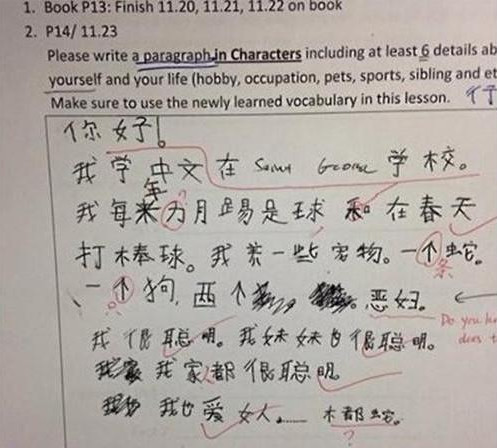 1. Book P13: Finish 11.20, 11.21, 11.22 on book
2. P14/ 11.23
Please write a paragraph in Characters including at least 6 details ab
yourself and your life (hobby, occupation, pets, sports, sibling and et
Make sure to use the newly learned vocabulary in this lesson.
你好!
我学中文在 George 学校。
年
我每 为月踢是球和在春天
打棒球。我养一些宠物。一个蛇。
条
一个狗,两个 恶妇。
Do you
does t
我很聪明。我妹妹也很聪明。
我家都很聪明。
我也爱女人…… 木都蛇。